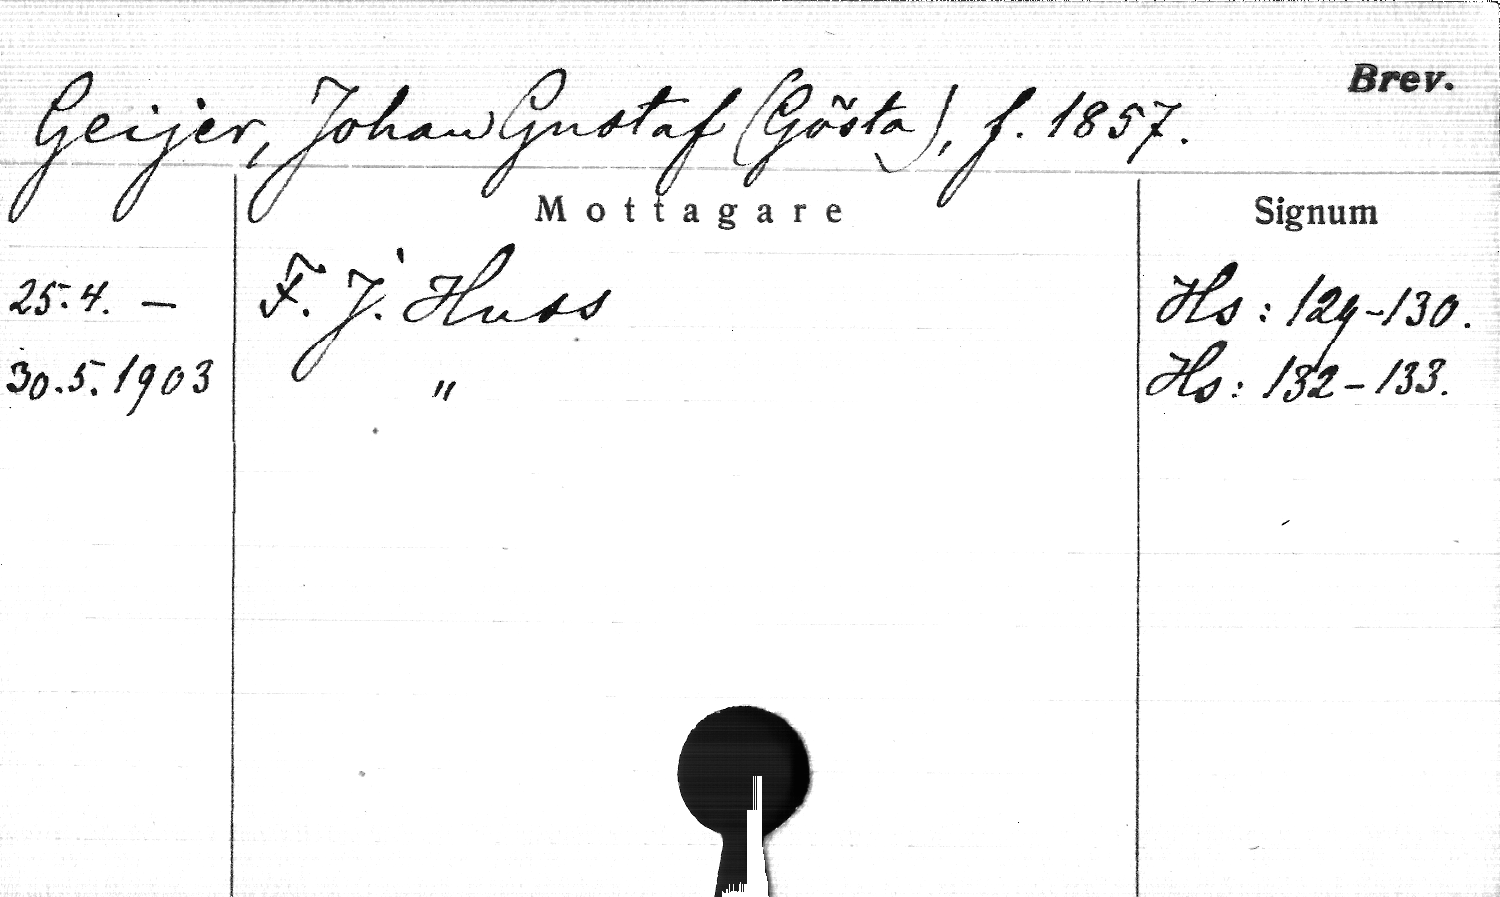 Brev.
Geijer, Johan Gustaf (Gösta), f. 1857.
Mottagare Signum
25.4. — F. J. Huss Hs: 129-130.
30.5.1903 " Hs: 132-133.